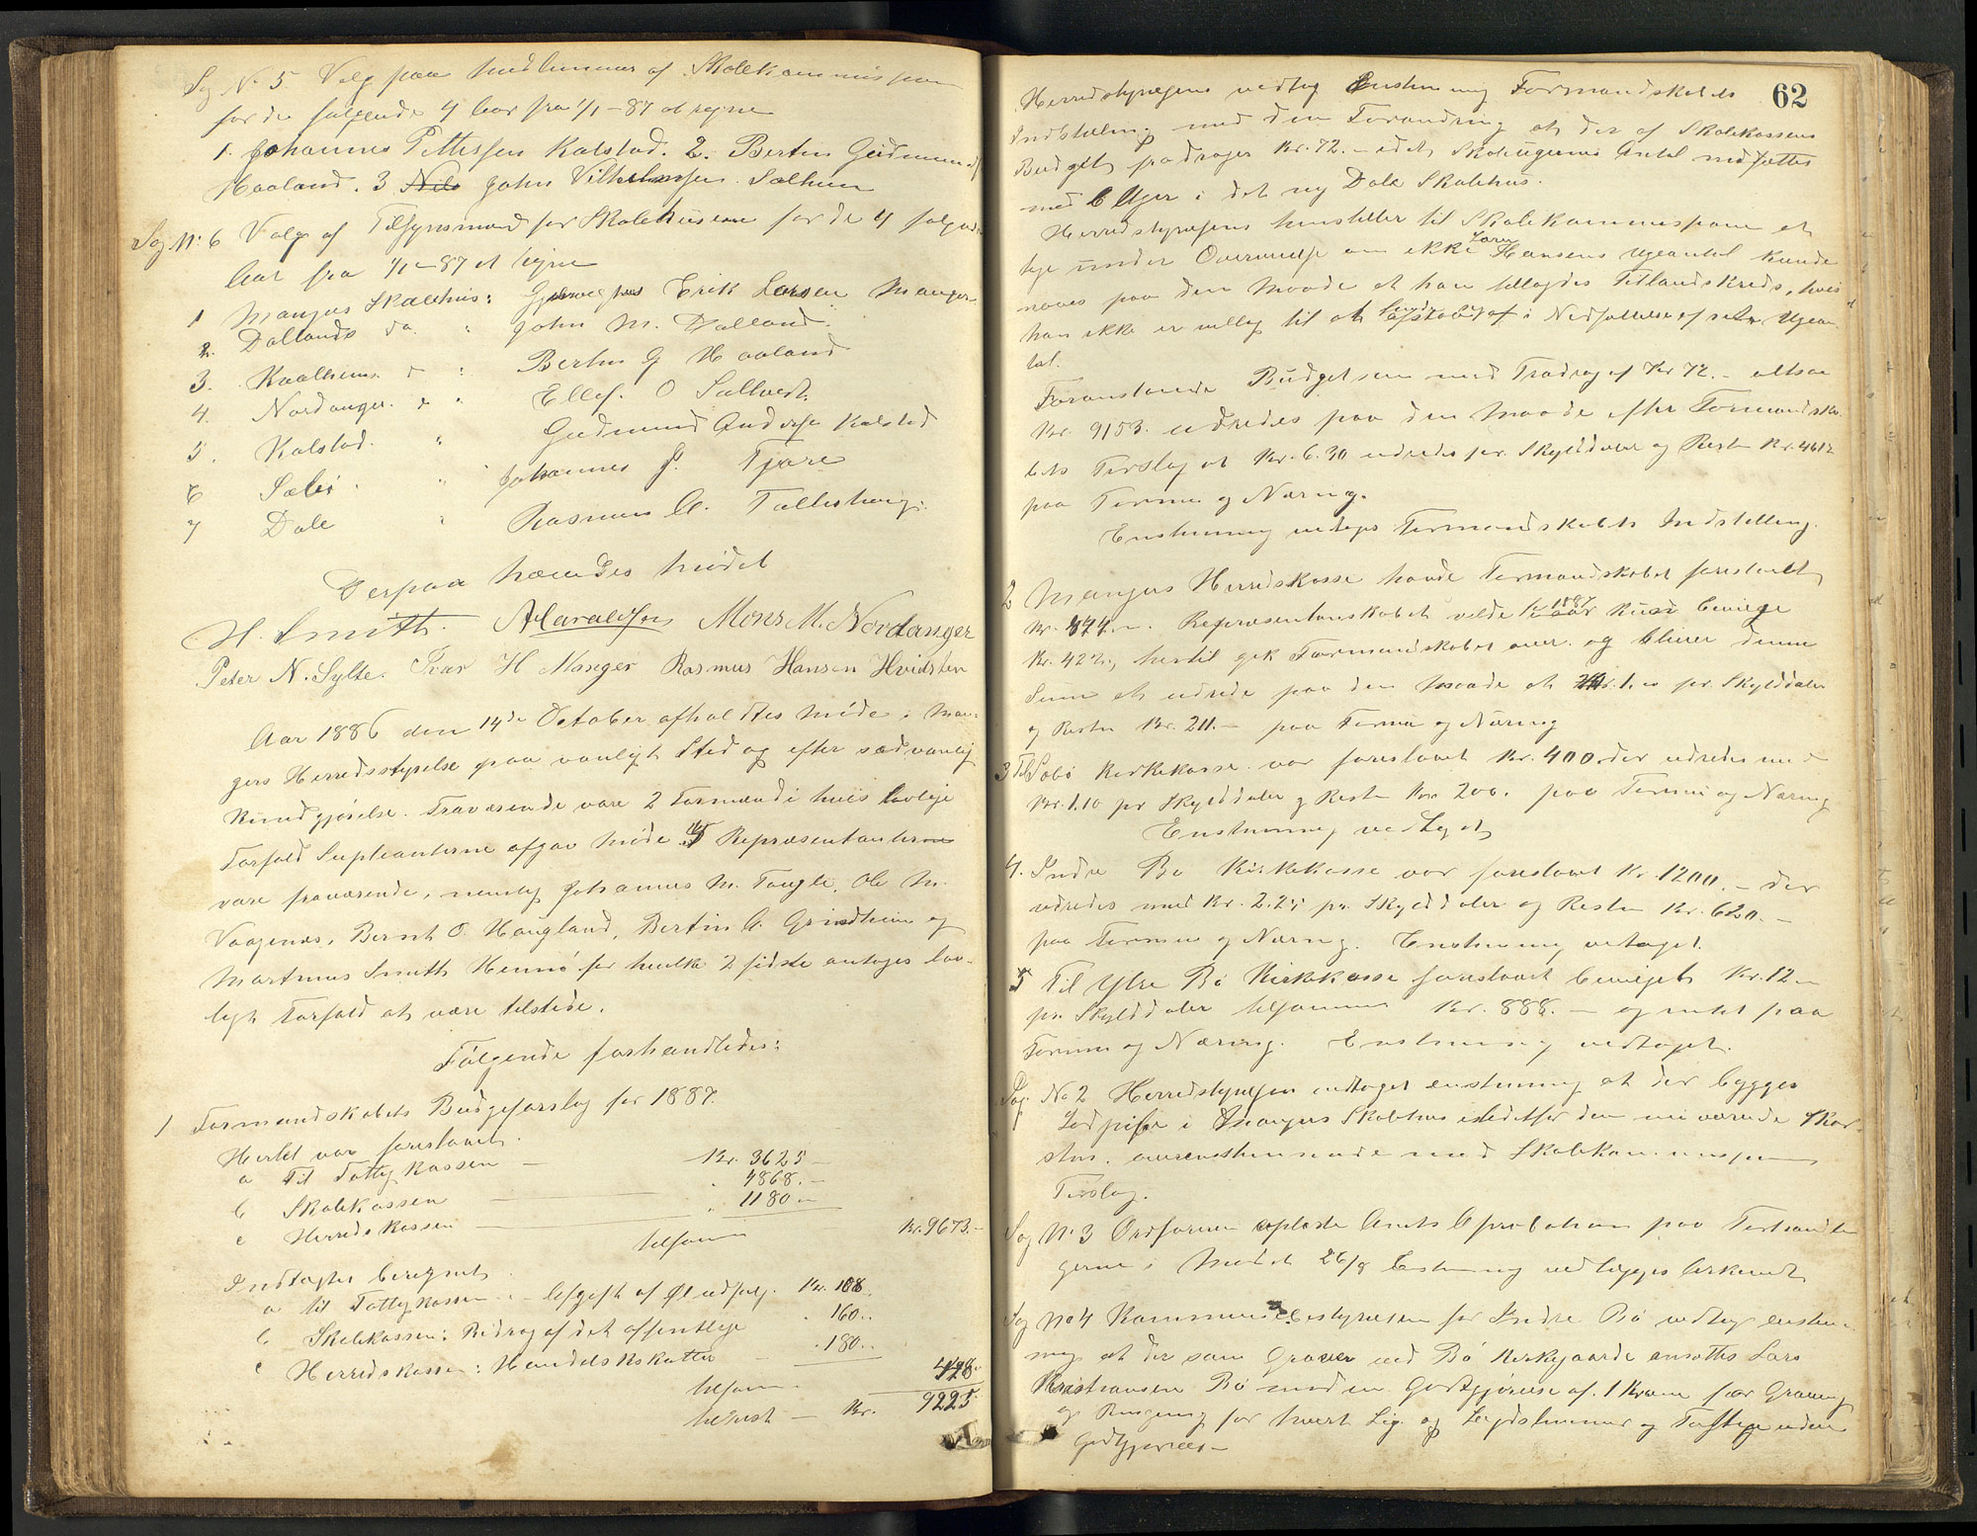 Sag No 5 Valg paa medlemmer af Skolekommissionen
for de følgende 4 Aar fra 1/1-87 at regne
1. Johannes Pettersen Kalstad. 2. Bertin Gudmunds
Haaland. 3 Nils John Vilhelmsen Sælheim
Sag No 6 Valg af Tilsynsmænd for Skolehusene for de 4 følgende
Aar fra 1/1-87 at regne
1 Mangers Skolehus: Erik Larsen Manger
2. Dallands do " John M. Dalland.
3. Kvalheims d " Bertin G Haaland
4. Nordanger d " Ellef. O Sætvedt
5. Kalstad. " Gudmund Anders Kalstad
6 Sæbø. " Johannes J. Fjøre
7 Dale " Rasmus A. Tollishaug.
Derpaa hævedes mødet
H. Smith. A Haraldsen Mons M. Nordanger
Peter N. Sylte. Ivar H Manger Rasmus Hansen Hvidsten
Aar 1886 den 14de October afholdtes møde i Man-
gers Herredsstyrelse paa vanligt Sted og efter sædvanlig
Kundgjørelse. Fraværende vare 2 Formænd i hvis lovlige
Forfald Supleanterne afgav møde. 5 Repræsentanterne
vare fraværende, nemlig Johannes M. Taugle, Ole M.
Vaagenæs, Bernt O. Haugland, Bertin A. Grindheim og
Martinus Smith Hennø for hvilke 2 sidste antoges lov-
ligt Forfald at være tilstede.
Følgende forhandledes:
1 Formandskabets Budgeforslag for 1887.
Hertil var foreslaaet.
a Til Fattigkassen – Kr. 3625 –
b Skolekassen – " 4868. –
c Herredskassen – " 1180 –
tilsammen Kr. 9673. –
Indtægter beregnet
a til Fattigkassen: Afgift af Øludsalg. Kr. 108.
b Skolekassen: Bidrag af det offentlige . 160..
c Herredskassen: Handelsskatter – . 180..
tilsam. 448.
tilrest – Kr. 9225
62
Herredstyrelsens vedtog Enstemmig Formandskabets
Indstilling med den Forandring at der af Skolekassens
Budget fradrages Kr. 72. – idet Skoleugernes Antal nedsættes
med 6 Uger i det ny Dale Skolehus.
Herredstyrelsens henstiller til Skolekommissionen at
tage under Overveielse om ikke Lærer Hansens Ugeantal kunde
naaes paa den Maade at han tillagdes Tillandskreds, hvis
han ikke er villig til at i Nedsættelse af Ugean
tal.
Foranstaaende Budget som med Fradrag af Kr 72. – altsaa
Kr. 9153. udredes paa den Maade efter Formandska
bets Forslag at Kr. 6.30 udredes pr. Skylddaler og Resten Kr. 4612
paa Formue og Næring.
Enstemmig vedtages Formandskabets Indstilling.
2 Mangers Herredskasse havde Formandskabet foreslaaet
Kr. 474. –. Repræsentanskabet vilde for 1887 kun bevilge
Kr. 422., hertil gik Formandskabet over. og bliver denne
Sum at udrede paa den Maade at Kr. 1. – pr. Skylddaler
og Resten Kr. 211. – paa Formue og Næring
3 Til Sæbø Kirkekasse var foreslaaet Kr. 400 der udredes med
Kr. 1.10 pr Skylddaler og Resten Kr. 200. paa Formue og Næring
Enstemmig vedtaget
4. Indre Bø Kirkekasse var foreslaaet Kr. 1200. – der
udredes med Kr. 2.25 pr. Skylddaler og Resten Kr. 620. –
paa Formue og Næring. Enstemmig vedtaget.
5 Til Ytre Bø Kirkekasse foreslaaet bevilget Kr. 12 –
pr. Skylddaler tilsammen Kr. 888. – og intet paa
Formue og Næring. Enstemmig vedtaget.
Sag No 2 Herredstyrelsen vedtaget enstemmig at der bygges
i Mangers Skolehus istedetfor den nuværende Skor-
sten. overensstemmende med Skolekommissionens
Forslag.
Sag No 3 Ordføreren oplæste Amtets Aprobation paa Forhandlin
gerne i Mødet 26/8 Enstemmig vedlægges Arkivet
Sag No 4 Kommunebestyrelsen for Indre Bø vedtog enstem-
mig at der som Graver ved Bø Kirkegaarde ansattes Lars
Kristiansen Bø mod en Godtgjørelse af. 1 Krone for Graving
og Ringning for hvert Lig. og uden
Godtgjørelse –